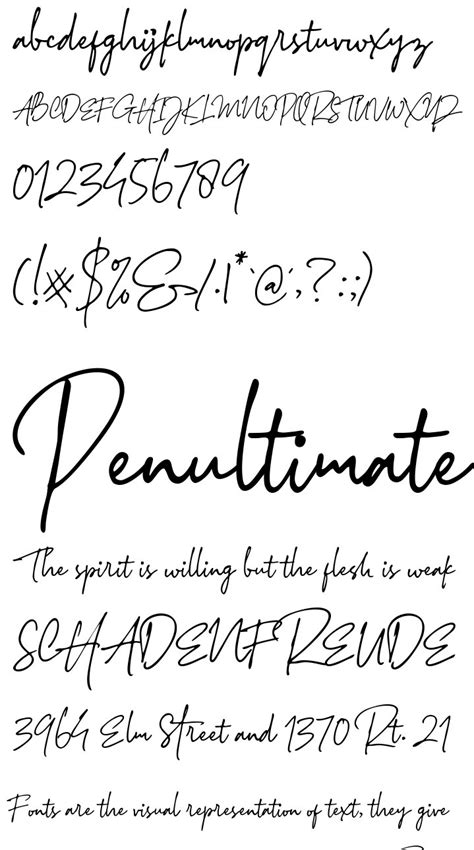 abcdefghijklmnopqrstuvwxyz
ABCDEFGHIJKLMNOPQRSTUVWXYZ
0123456789
(!#$%&/.|*`@´,?:;)
Penultimate
The spirit is willing but the flesh is weak
SCHADENFREUDE
3964 Elm Street and 1370 Rt. 21
Fonts are the visual representation of text, they give